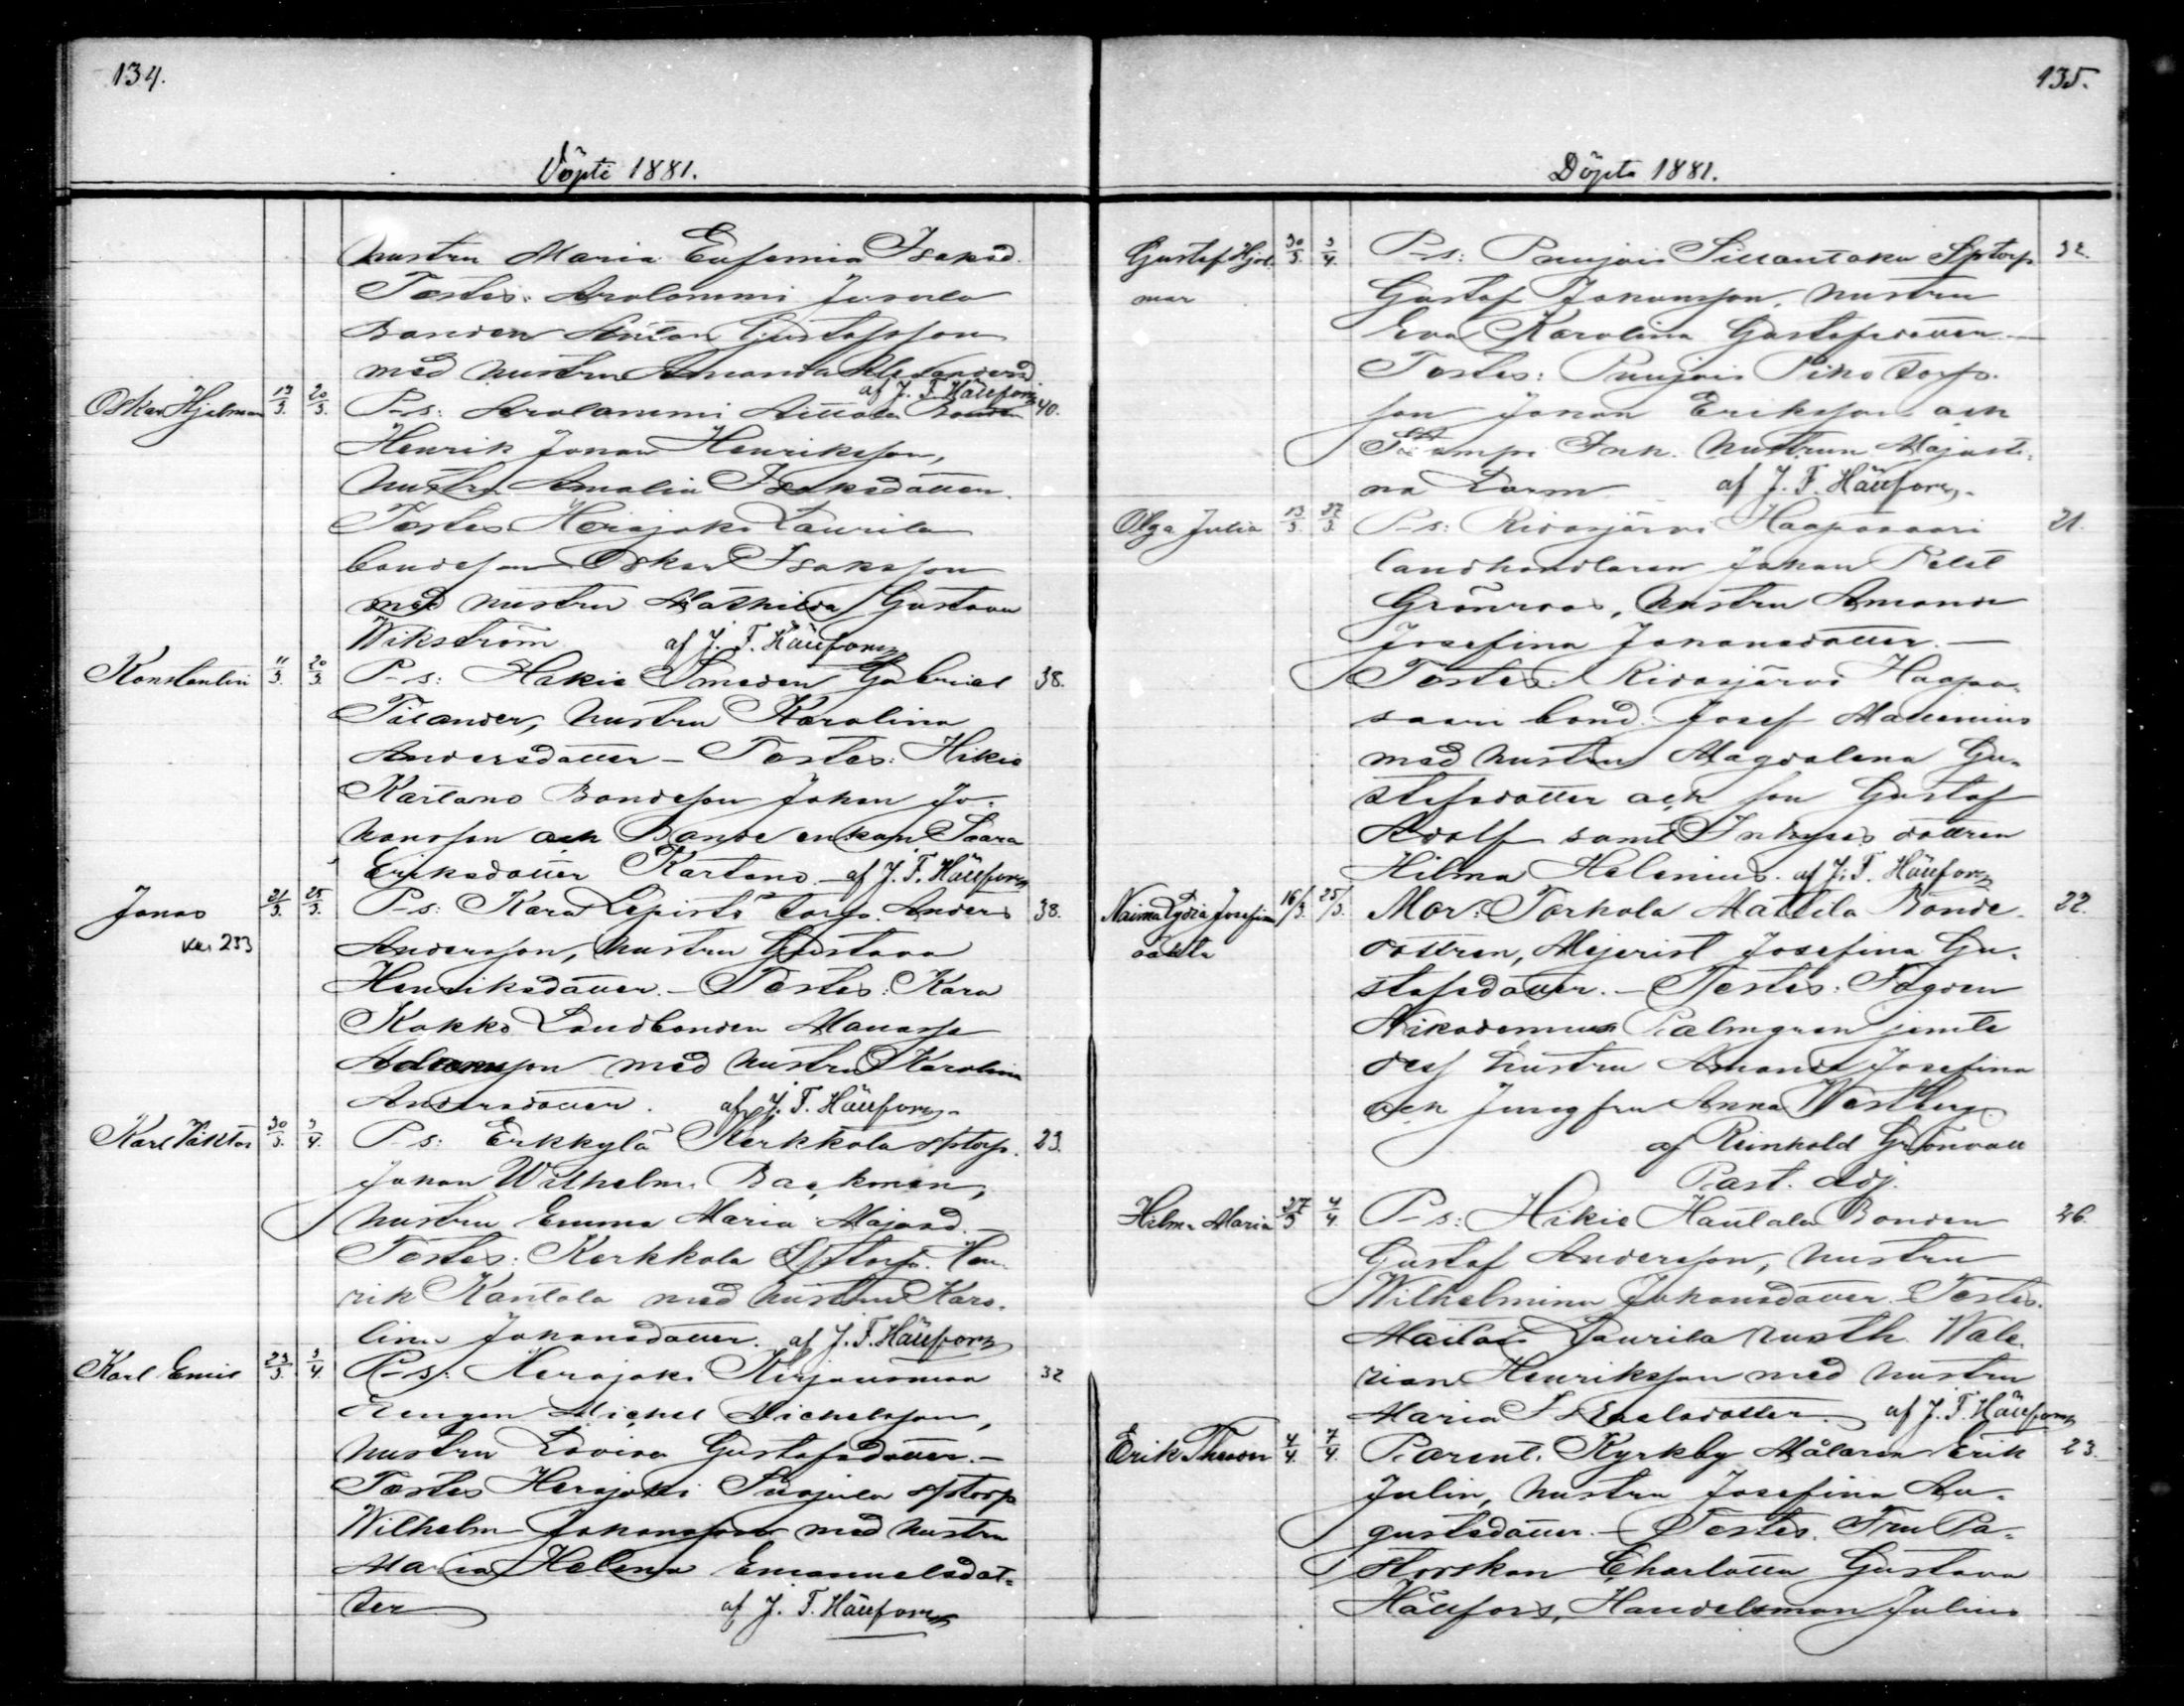 134.
Döpte 1881.
hustru Maria Eufemia Isaksd.
Testes: Arolammi Jussila
Bonden Anton Gustafsson
med hustru Amanda Alexandersd
af J. F. Hällfors
Oskar Hjalmar 17/3. 20/3. P-s: Arolammi Aittola Bonden 40.
Henrik Johan Henriksson,
hustru Amalia Isaksdotter.
Testes Herajoki Laurila
bondeson Oskar Isaksson
med hustru Mathilda Gustava
Wikström af J. F. Hällfors
Konstantin 11/3. 20/3. P-s: Hikiä Smeden Gabriel 38.
Tilander, hustru Karolina
Andersdotter - Testes: Hikiä
Kartano Bondeson Johan Jo-
hansson och Bonde enkan Saara
Eriksdotter Kartano - af J. F. Hällfors
Jonas 21/3. 25/3. P-s: Kara Lepistö torp. Anders 38.
233
Andersson, hustru Gustava
Henriksdotter. - Testes: Kara
Kokko Landbonden Manasse
Adamsson med hustru Karolina
Andersdotter. af J. F. Hällfors.
Karl Viktor 30/3. 3/4. P-s: Erkkylä Kerkkola sptorp. 23.
Johan Wilhelm Backman,
hustru Emma Maria Majasd. -
Testes: Kerkkola Sptorp. Hen-
rik Kantola med hustru Karo-
lina Johansdotter. af J. F. Hällfors
Karl Emil 23/3. 3/4. P-s: Herajoki Kirjausmaa 32
Drengen Michel Michelsson,
hustru Lovisa Gustafsdotter. -
Testes Herajoki Suojula sptorp
Wilhelm Johansson med hustru
Maria Helena Emanuelsdot-
ter af J. F. Hällfors
135.
Döpta 1881.
Gustaf Hjal- 30/3. 3/4. P-s: Punjois Sillantaka Sptorp 32.
mar Gustaf Johansson, hustru
Eva Karolina Gustafsdotter. -
Testes: Punjois Piko torp.
son Johan Eriksson och
Inh. hustrun Majasti-
na Lorm af J. F. Hällfors.
Olga Julia 13/3. 27/3. P-s: Ridasjärvi Haapasaari 21.
landhandlaren Johan Fidel
Grönroos, hustru Amanda
Josefina Johansdotter. -
Testes: Ridasjärvi Haapa-
saari bond. Josef Mattenius
med hustru Magdalena Gu-
stafsdotter och son Gustaf
Adolf samt Inhyses dottren
Hilma Helenius. af J. F. Hällfors
Naima Lydia Josefina 16/3. 25/3. Mor: Torhola Mattila Bonde- 22.
oäkta dottren, Mejerist Josefina Gu-
stafsdotter. - Testes: Fogden
Nikodemus Palmgren jemte
dess hustru Amanda Josefina
och Jungfru Anna Westberg.
af Reinhold Grönvall
Past. Adj.
Hilma Maria 27/3 4/4. P-s: Hikiä Hautala Bonden 26.
Gustaf Andersson, hustru
Wilhelmina Johansdotter. Testes.
Maitois Laurila rusth. Wale-
rian Henriksson med hustru
Maria Israelsdotter. af J. F. Hällfors
Erik Theodor 4/4. 7/4. Parent. Kyrkby Målaren Erik 23.
Julin, hustru Josefina Au-
gustsdotter. - Testes. Fru Pa-
storskan Charlotta Gustava
Hällfors, Handelsman Julius